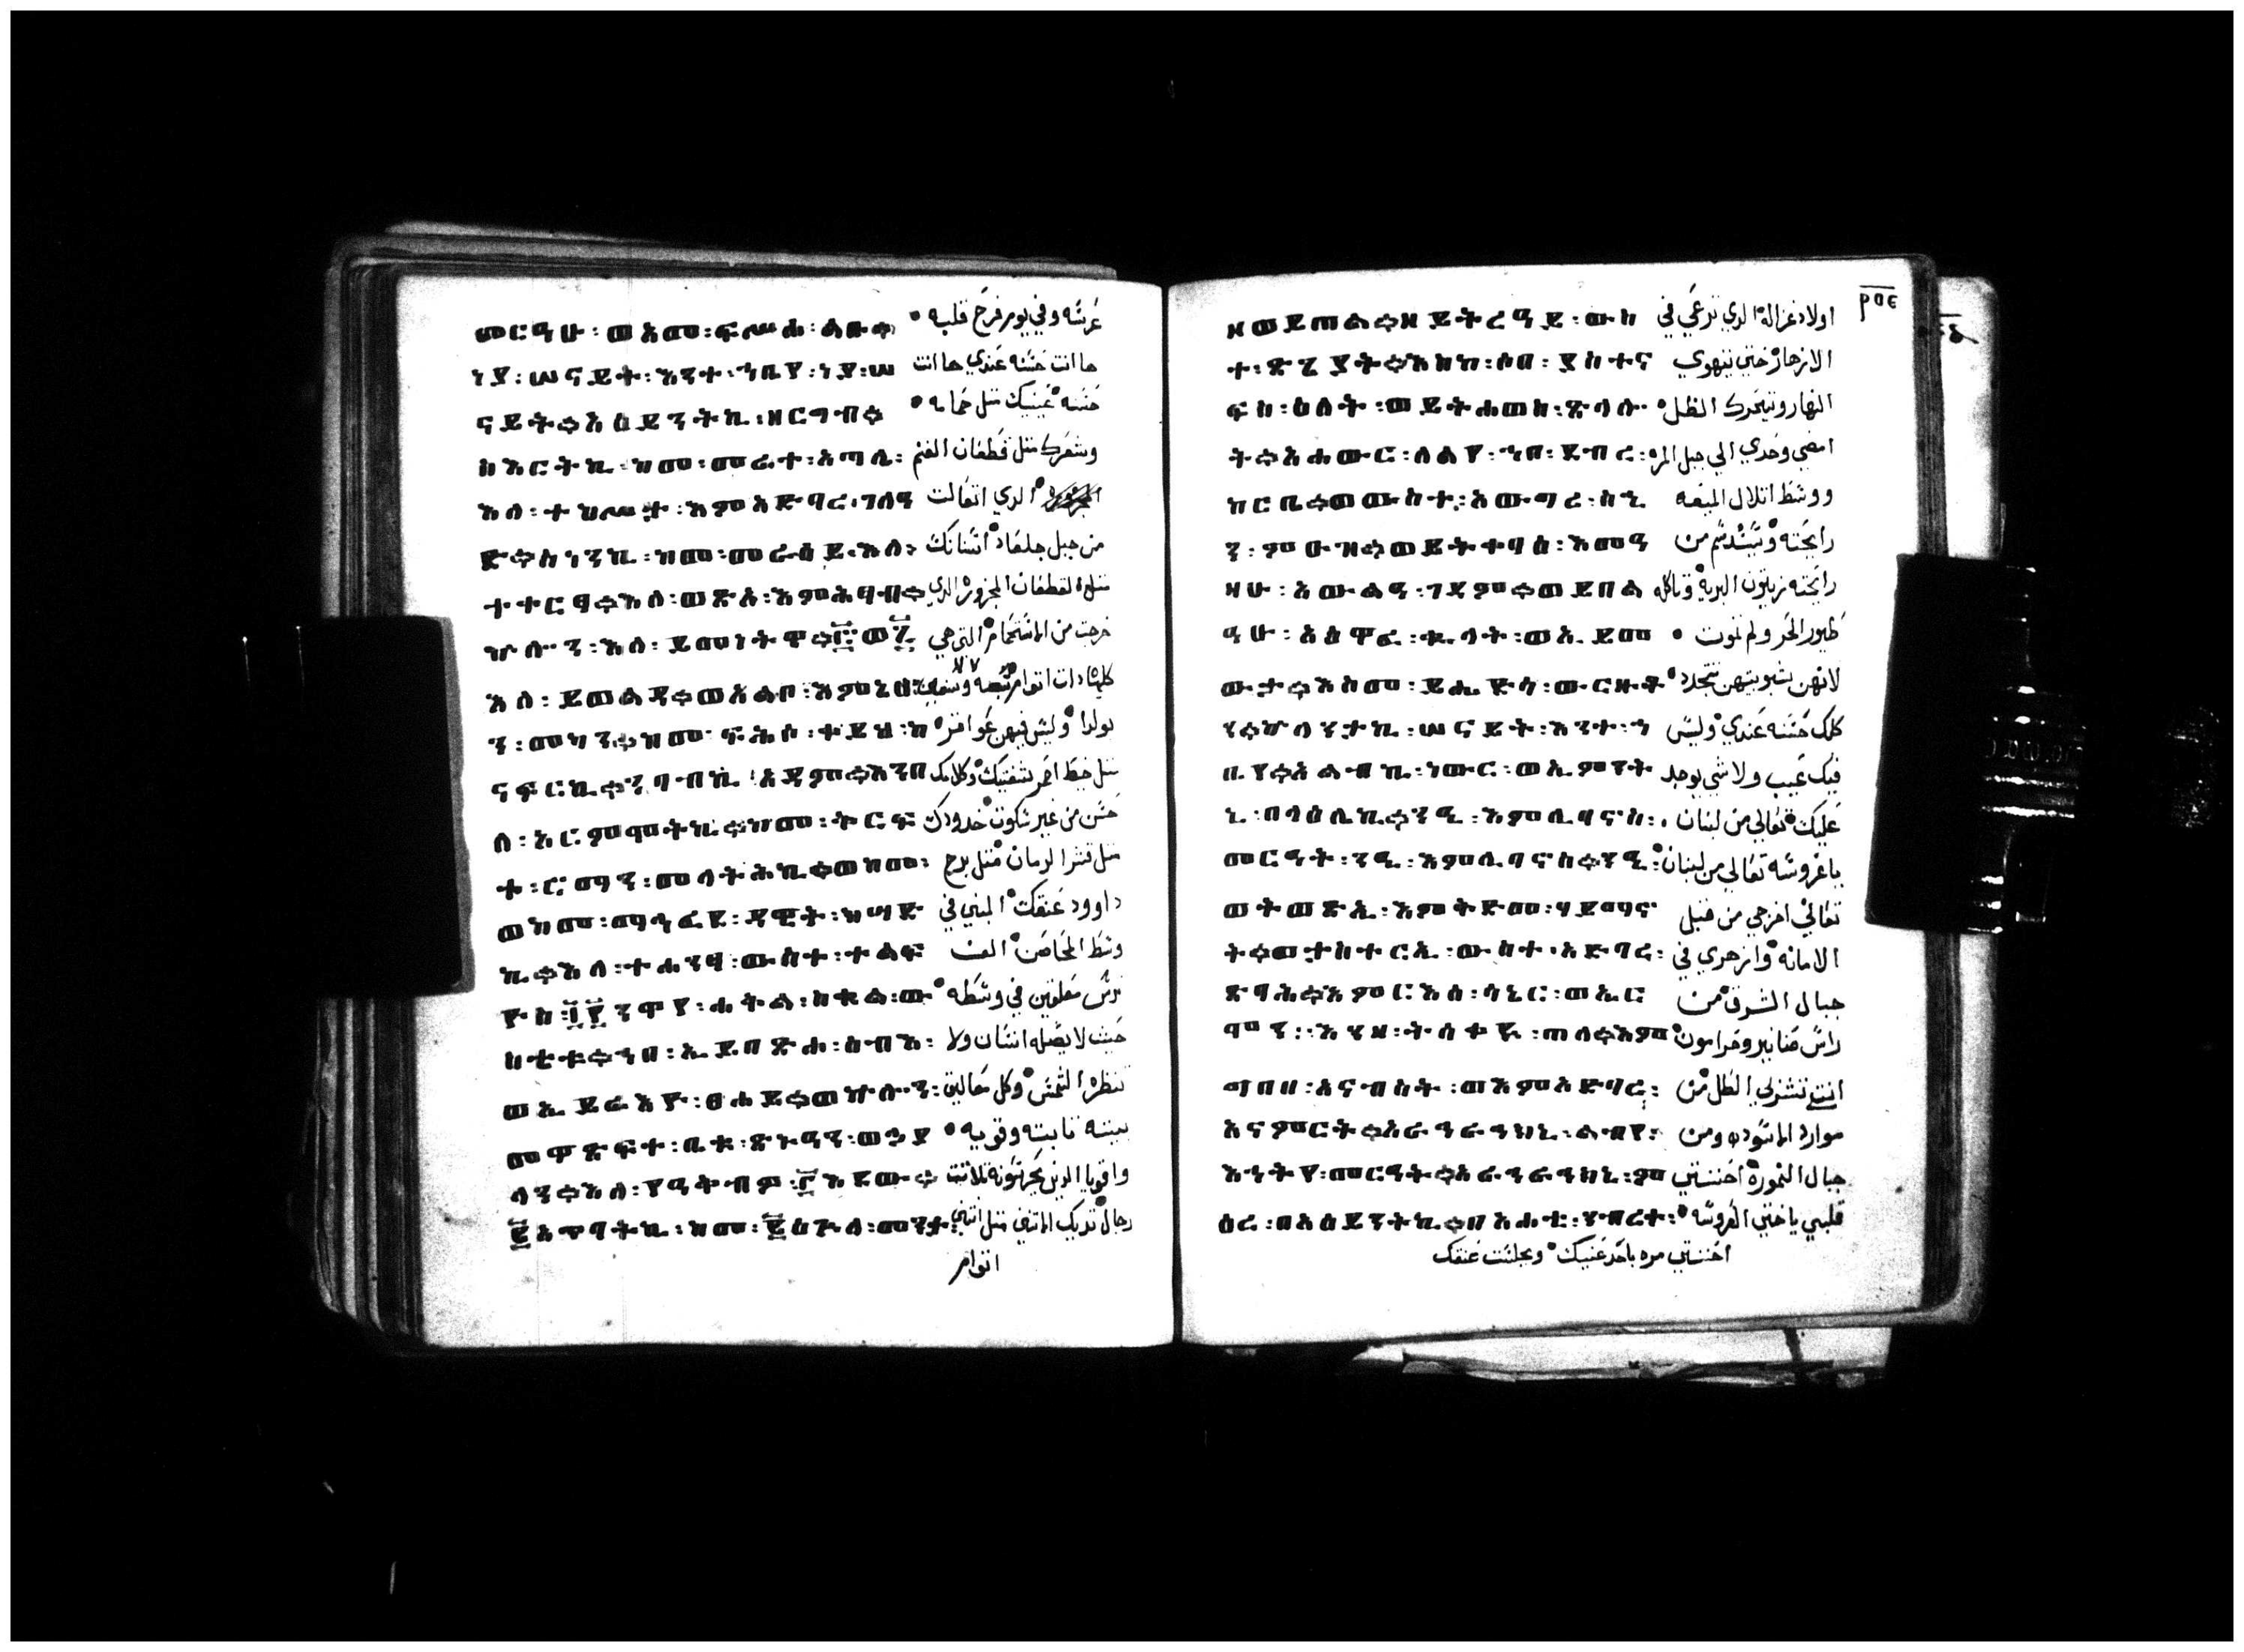 መርዓሁ፡ወአመ፡ፍሥሐ፡ልቡ። عرسه وفي يوم فرح قلبه
ነያ፡ሠናይት፡እንተ፡ኀቤየ፡ነያ፡ሠ ها انت حسنه عندي ها انت
ናይት።አዕይንትኪ፡ዘርግብ። حسنه عينيك متل حمامه
ስእርትኪ፡ከመ፡መራተ፡አጣሊ፡ وشعرك متل قطعان الغنم
እለ፡ተከሥታ፡እምአድባረ፡ገለዓ الدي اتعالت
ድ።ስነንኪ፡ከመ፡መራዕይ፡እለ፡ من جبل جلعاد اسنانك
ተቀርፃ።እለ፡ወጽአ፡እምሕፃብ። متل القطعان المجزوزه الدي
ኵሎን፡እለ፡ይመንትዋ። خرجت من المستحام التي هي
እለ፡ይወልዳ።ወአልቦ፡እምኔሆ كلها دات اتوام
ን፡መካን።ከመ፡ፍሕሶ፡ቀይሕ፡ከ تولدا وليس فيهن عواقر
ናፍርኪ።ንባብኪ፡አዳም።እንበ متل خيط احمر شفتيك وكلامك
ለ፡አርምሞትኪ።ከመ፡ቅርፍ حسن من غير سكوت خدودك
ተ፡ሮማን፡መላትሕኪ።ወከመ፡ متل قشر الرمان متل برج
ወከመ፡ማኅፈደ፡ዳዊት፡ክሣድ داوود عنقك المبني في
ኪ።እለ፡ተሐንፃ፡ውስተ፡ተልፍ وسط المحاصن الف
ዮስ፡፲፻ንዋየ፡ሐቅል፡ስቁል፡ው ترس معلقين في وسطه
ስቴቱ።ኀበ፡ኢይበጽሕ፡ሰብእ፡ حيث لا يصله انسان ولا
ወኢይሬእዮ፡ፀሐይ።ወኵሎን፡ تنظره الشمس وكل مقاليع
መዋጽፍተ፡ቤቱ፡ጽኑዓን፡ወኃያ بيته تابته وقويه
ላን።እለ፡የዓቅብዎ፡፫እደው። واقويا الدين يحرسونه تلاتت
፪አጥባትኪ፡ከመ፡፪ዕጕለ፡መንታ رجال تدييك الاتنين متل اتنين
اتوام
ዘወይጠል።ዘይትረዓይ፡ውስ اولاد غزاله الدي ترعي في
ተ፡ጽጌያት።እስከ፡ሶበ፡ያስተና الازهار حتي يتهوي
ፍስ፡ዕለት፡ወይትሐወስ፡ጽላሎ النهار ويتحرك الظل
ት።አሐውር፡ለልየ፡ኀበ፡ደብረ፡ امضي وحدي الي جبل المر
ከርቤ።ወውስተ፡አውግረ፡ስኂ ووسط اتلال الميعه
ን፡ምዑዝ።ወይትቀባዕ፡እመዓ رايحته من
ዛሁ፡አውልዓ፡ገዳም።ወይበል رايحته زيتون البرية وتاكله
ዓሁ፡አዕዋፈ፡ቁላት፡ወኢይመ طيور الحر ولم تموت
ውታ።እስመ፡ይሔድሳ፡ውርዙቶ لانهن شبوبيتهن تتجدد
ን።ኵላንታኪ፡ሠናይት፡እንተ፡ኀ كلك حسنه عندي وليس
ቤየ።አልብኪ፡ነውር፡ወኢምንት فيك عيب ولا شي يوجد
ኒ፡በላዕሌኪ።ንዒ፡እምሊባኖስ። عليك تعالي من لبنان
መርዓት፡ንዒ፡እምሊባኖስ።ንዒ፡ يا عروسه تعالي من لبنان
ወትወጽኢ፡እምቅድመ፡ሃይማኖ تعالي اخرجي من قبل
ት።ወታስተርኢ፡ውስተ፡አድባረ፡ الامانه وازهري في
ጽባሕ።እምርእሰ፡ሳኔር፡ወኤር جبال الشرق من
ሞን።እንዘ፡ትሰቀይ፡ጠለ።እም راس صنانير وحرامون
ግበበ፡አናብስት፡ወእምአድባረ፡ الطل من
አናምርት። ልብየ፡ موارد الاسوده ومن
እኅትየ፡መርዓት። ም جبال النمورة احننتي
ዕረ፡በአዕይንትኪ።በአሐቲ፡ قلبي يا ختي العروسه
احننتي مره باحد عنيك وبجلست عنقك